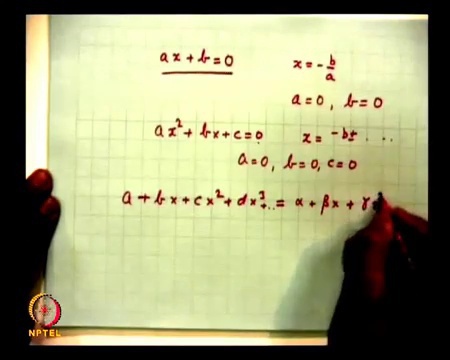 ax + b = 0    x = -b/a
a = 0, b = 0
ax² + bx + c = 0    x = -b± ...
a = 0, b = 0, c = 0
a + bx + cx² + dx³ + .. = α + βx + γ
NPTEL